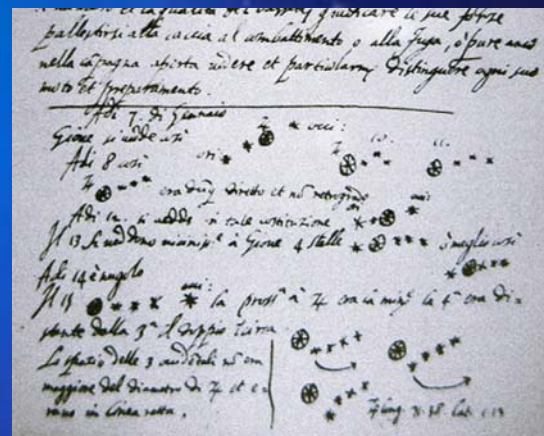 numero et la qualità dei Vasselli giudicare le sue forze
pallestirsi alla caccia al combattimento o alla fuga, ò pure anco
nella campagna aperta uedere et particolarmᵉ distinguere ogni suo
moto et preparamento.
Adi 7. di Gennaio
Gioue si uede così ♃ occ:
Adi 8 così ori ♃ 10. 11.
♃ era dūq diretto et nō retrogrado
Adi 12. si uedde in tale costituzione ori occ
Il 13 si ueddono à Gioue 4 stelle ò meglio così
Adi 14 è nugolo
Il 15 occ: la prossᵃ à ♃ era la minᵉ la 4ᵃ era di=
stante dalla 3ᵃ il doppio Circa.
Lo spatio delle 3 occidētali nō era
maggiore del diametro di ♃ et e=
rano in linea retta.
♃ long. lat. 1.13